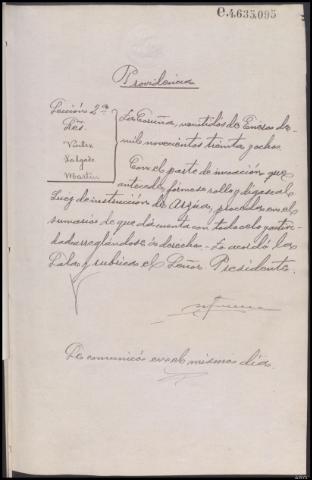 C.4.635.095
Providencia
Sección 2ª
Sres.
Varela
Salgado
Martin
La Coruña, veintidos de Enero de
mil novecientos treinta y ocho.
Con el parte de incoación que
antecede, fórmese rollo y dígase al
Juez de instrucción de Arzúa, proceda en el
sumario de que dá cuenta con toda actividad
arreglándose á derecho. Lo acordó la
Sala y rubrica el Señor Presidente.
Se comunicó en el mismo día.